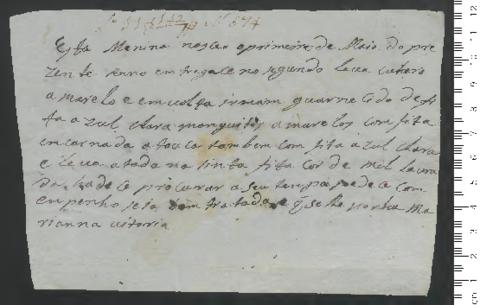 Esta Menina nasceo o primeiro de Maio do pre
zente Anno emtregase no segundo leva coeiro
amarelo e em volta irmam guarnecido de fi
ta azul clara manguitos amarelos com fita
emcarnada a touca tambem com fita azul clara
e leva atada na sinta fita cor de mel lavra
da hade se procurar a seu tempo pede se com
empenho seja bem tratada e q se lhe ponha Ma
rianna vitoria